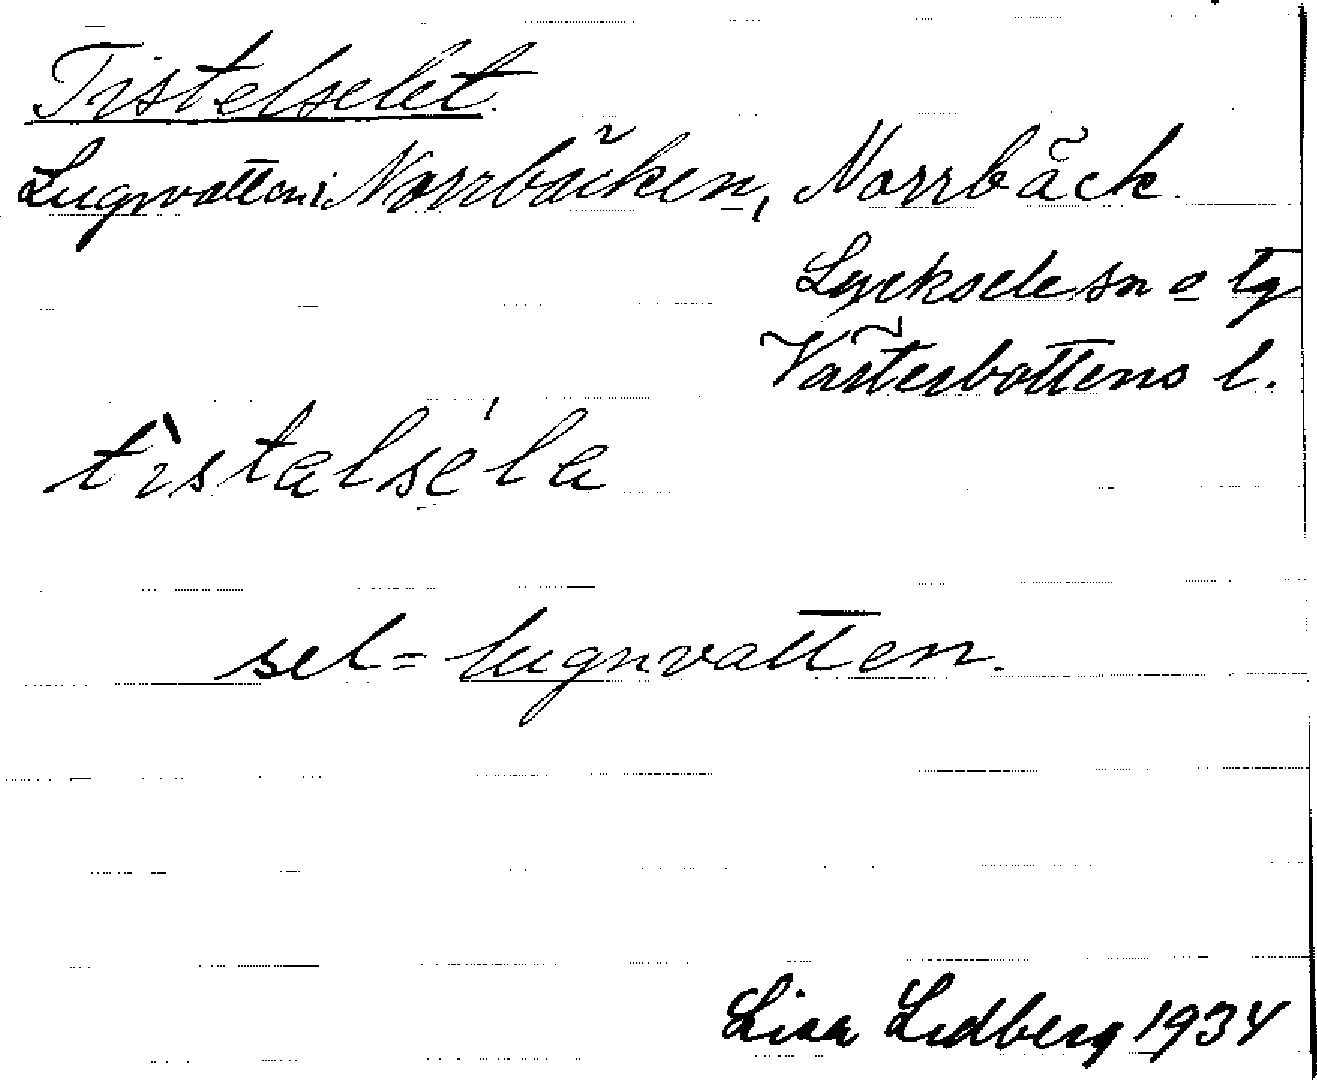 Tistelselet.
Lugnvatten i Norrbäcken, Norrbäck.
Lycksele sn o tg
Västerbottens l.
tìstalsela
sel = lugnvatten.
Lisa Lidberg 1934